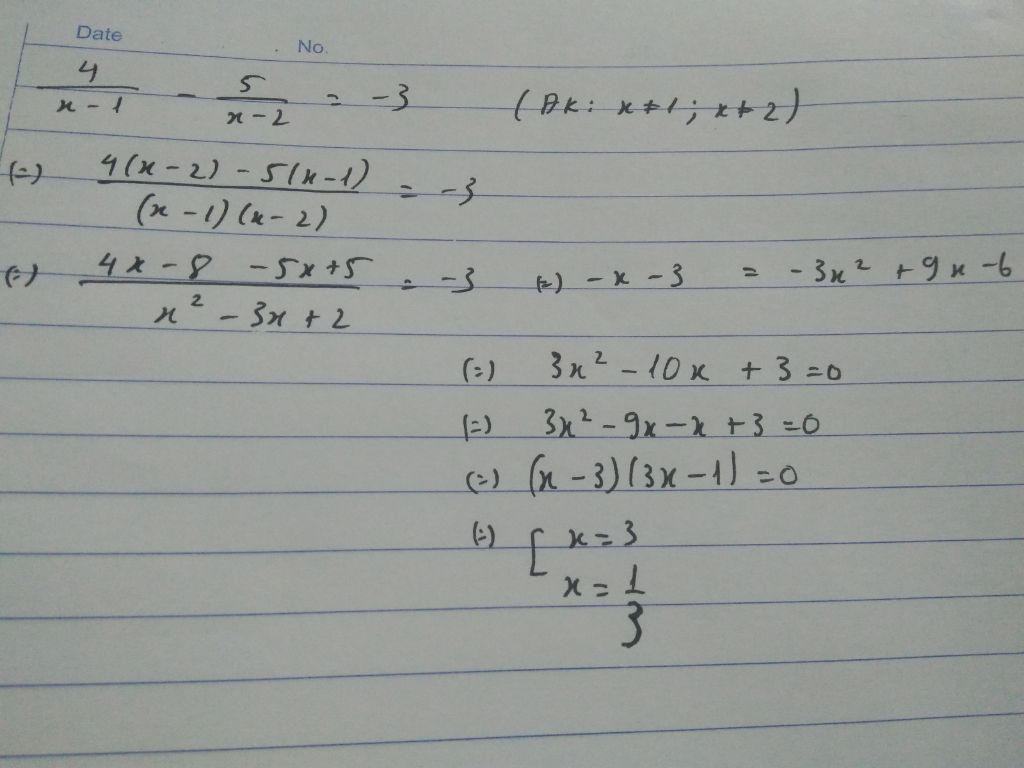 Date No.
4/(x - 1) - 5/(x - 2) = -3 (ĐK: x ≠ 1; x ≠ 2)
(=) (4(x - 2) - 5(x - 1))/((x - 1)(x - 2)) = -3
(=) (4x - 8 - 5x + 5)/(x² - 3x + 2) = -3 (=) -x - 3 = -3x² + 9x - 6
(=) 3x² - 10x + 3 = 0
(=) 3x² - 9x - x + 3 = 0
(=) (x - 3)(3x - 1) = 0
(=) [ x = 3
x = 1/3